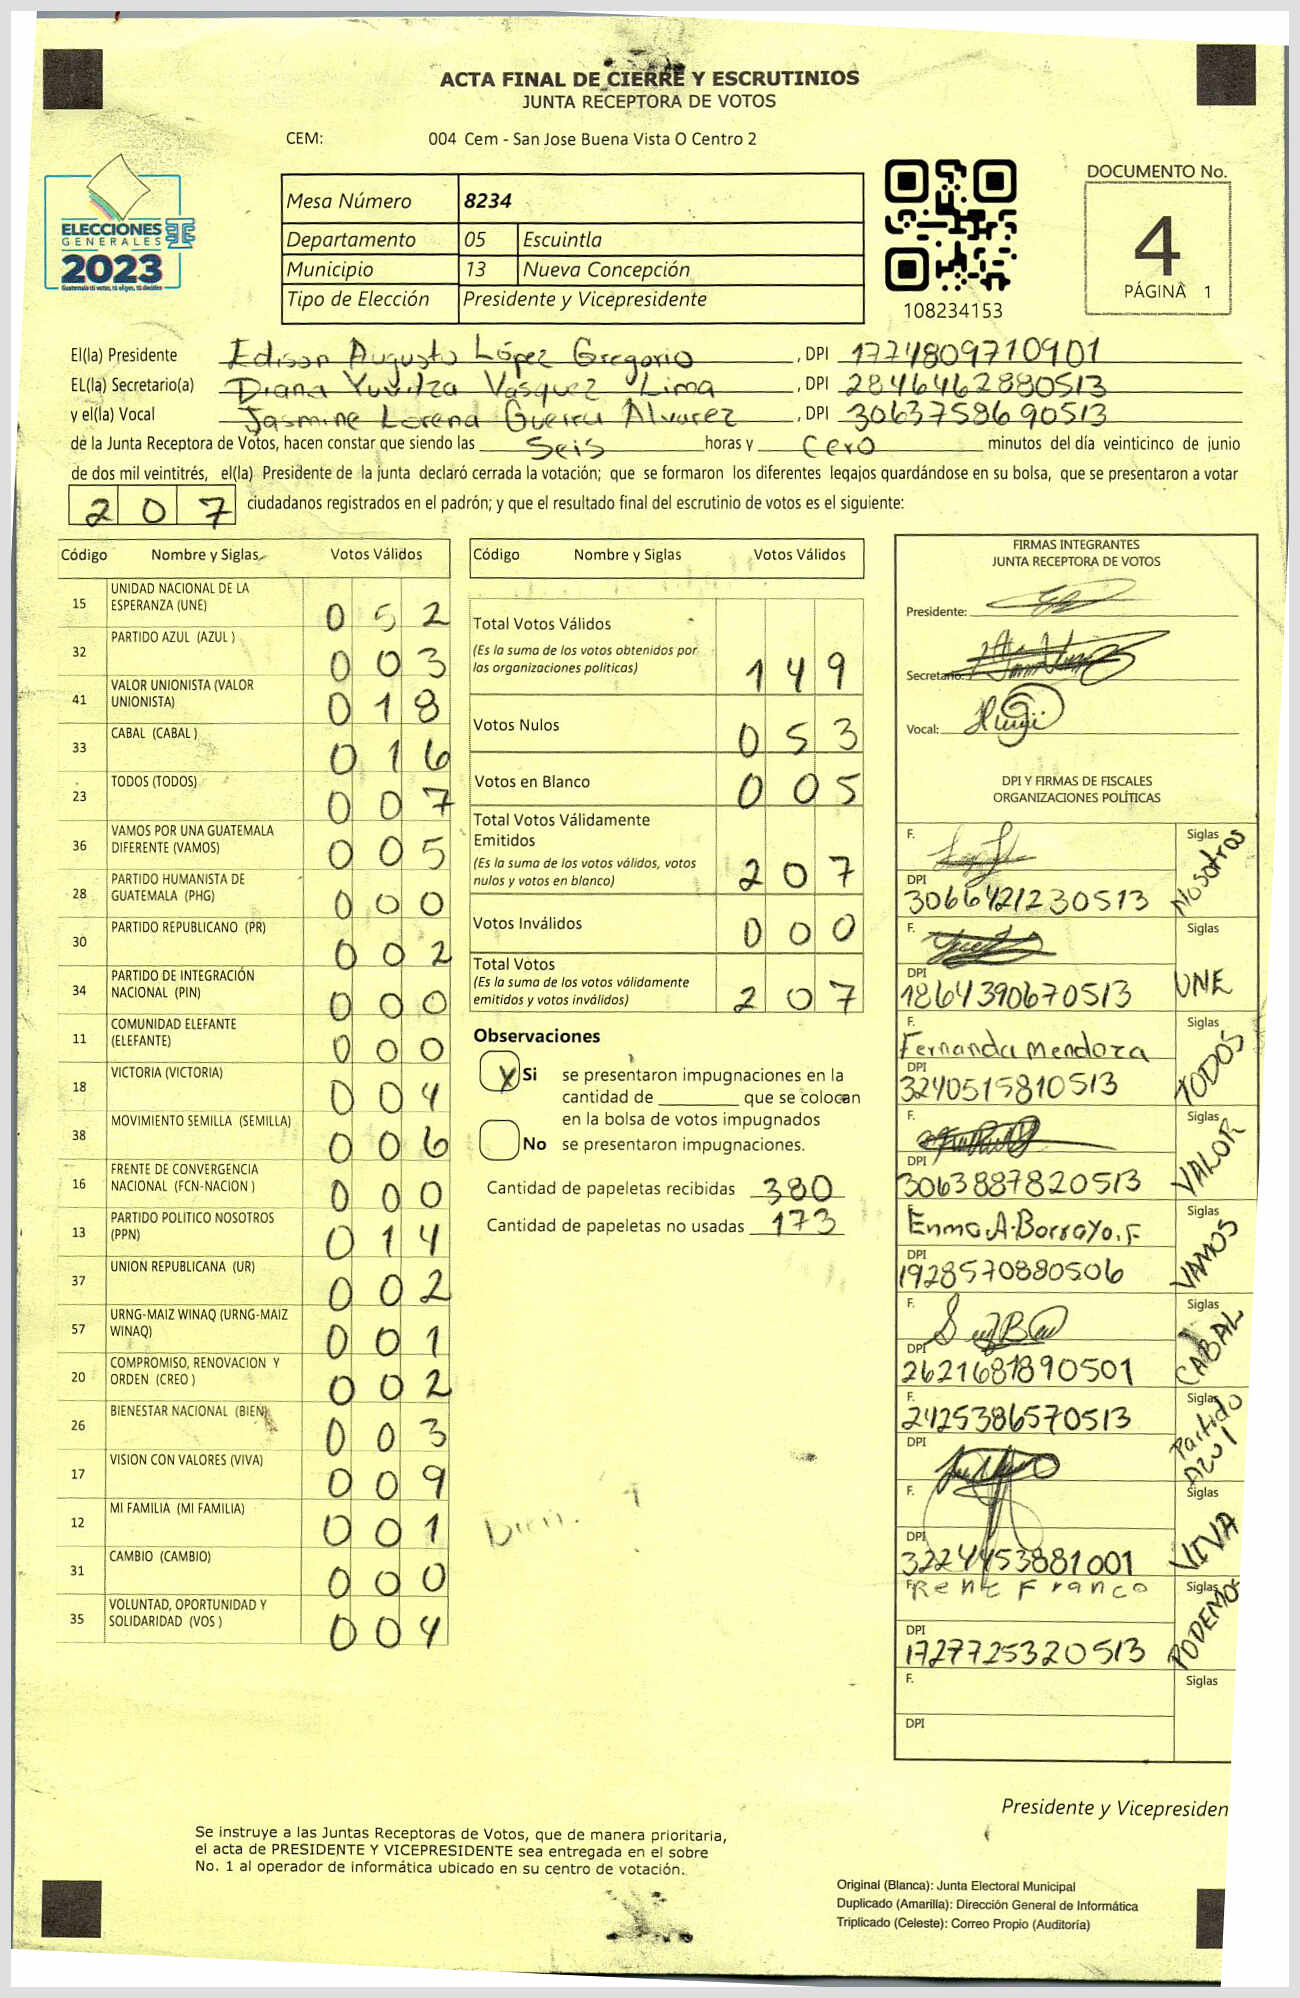 ACTA FINAL DE CIERRE Y ESCRUTINIOS
JUNTA RECEPTORA DE VOTOS
CEM: 004 Cem - San Jose Buena Vista O Centro 2
ELECCIONES
GENERALES
2023
Guatemala tú votas, tú eliges, tú decides
Mesa Número 8234
Departamento 05 Escuintla
Municipio 13 Nueva Concepción
Tipo de Elección Presidente y Vicepresidente
108234153
DOCUMENTO No.
4
PÁGINA 1
El(la) Presidente Edison Augusto López Gregorio, DPI 1774809710901
EL(la) Secretario(a) Diana Yuvitza Vasquez Lima, DPI 2846462880513
y el(la) Vocal Jasmine Lorena Guerra Alvarez, DPI 3063758690513
de la Junta Receptora de Votos, hacen constar que siendo las Seis horas y Cero minutos del día veinticinco de junio
de dos mil veintitrés, el(la) Presidente de la junta declaró cerrada la votación; que se formaron los diferentes legajos guardándose en su bolsa, que se presentaron a votar
207 ciudadanos registrados en el padrón; y que el resultado final del escrutinio de votos es el siguiente:
Código Nombre y Siglas Votos Válidos
15 UNIDAD NACIONAL DE LA ESPERANZA (UNE) 0 5 2
32 PARTIDO AZUL (AZUL ) 0 0 3
41 VALOR UNIONISTA (VALOR UNIONISTA) 0 1 8
33 CABAL (CABAL ) 0 1 6
23 TODOS (TODOS) 0 0 7
36 VAMOS POR UNA GUATEMALA DIFERENTE (VAMOS) 0 0 5
28 PARTIDO HUMANISTA DE GUATEMALA (PHG) 0 0 0
30 PARTIDO REPUBLICANO (PR) 0 0 2
34 PARTIDO DE INTEGRACIÓN NACIONAL (PIN) 0 0 0
11 COMUNIDAD ELEFANTE (ELEFANTE) 0 0 0
18 VICTORIA (VICTORIA) 0 0 4
38 MOVIMIENTO SEMILLA (SEMILLA) 0 0 6
16 FRENTE DE CONVERGENCIA NACIONAL (FCN-NACION ) 0 0 0
13 PARTIDO POLITICO NOSOTROS (PPN) 0 1 4
37 UNION REPUBLICANA (UR) 0 0 2
57 URNG-MAIZ WINAQ (URNG-MAIZ WINAQ) 0 0 1
20 COMPROMISO, RENOVACION Y ORDEN (CREO ) 0 0 2
26 BIENESTAR NACIONAL (BIEN) 0 0 3
17 VISION CON VALORES (VIVA) 0 0 9
12 MI FAMILIA (MI FAMILIA) 0 0 1
31 CAMBIO (CAMBIO) 0 0 0
35 VOLUNTAD, OPORTUNIDAD Y SOLIDARIDAD (VOS ) 0 0 4
Código Nombre y Siglas Votos Válidos
Total Votos Válidos
(Es la suma de los votos obtenidos por
las organizaciones políticas) 1 4 9
Votos Nulos 0 5 3
Votos en Blanco 0 0 5
Total Votos Válidamente
Emitidos
(Es la suma de los votos válidos, votos
nulos y votos en blanco) 2 0 7
Votos Inválidos 0 0 0
Total Votos
(Es la suma de los votos válidamente
emitidos y votos inválidos) 2 0 7
Observaciones
X Si se presentaron impugnaciones en la
cantidad de ________ que se colocan
en la bolsa de votos impugnados
No se presentaron impugnaciones.
Cantidad de papeletas recibidas 380
Cantidad de papeletas no usadas 173
FIRMAS INTEGRANTES
JUNTA RECEPTORA DE VOTOS
Presidente:
Secretario:
Vocal:
DPI Y FIRMAS DE FISCALES
ORGANIZACIONES POLÍTICAS
F. Siglas Nosotros
DPI 3066421230513
F. Siglas UNE
DPI 1864390670513
F. Fernanda Mendoza Siglas TODOS
DPI 3240515810513
F. Siglas VALOR
DPI 3063887820513
F. Enma A. Borrayo. F Siglas VAMOS
DPI 1928570880506
F. Siglas CABAL
DPI 2621681890501
F. 2425386570513 Siglas Partido Azul
DPI
F. Siglas VIVA
DPI 3224453881001
F. Rene Franco Siglas PODEMOS
DPI 1727725320513
F. Siglas
DPI
Presidente y Vicepresiden
Se instruye a las Juntas Receptoras de Votos, que de manera prioritaria,
el acta de PRESIDENTE Y VICEPRESIDENTE sea entregada en el sobre
No. 1 al operador de informática ubicado en su centro de votación.
Original (Blanca): Junta Electoral Municipal
Duplicado (Amarilla): Dirección General de Informática
Triplicado (Celeste): Correo Propio (Auditoría)